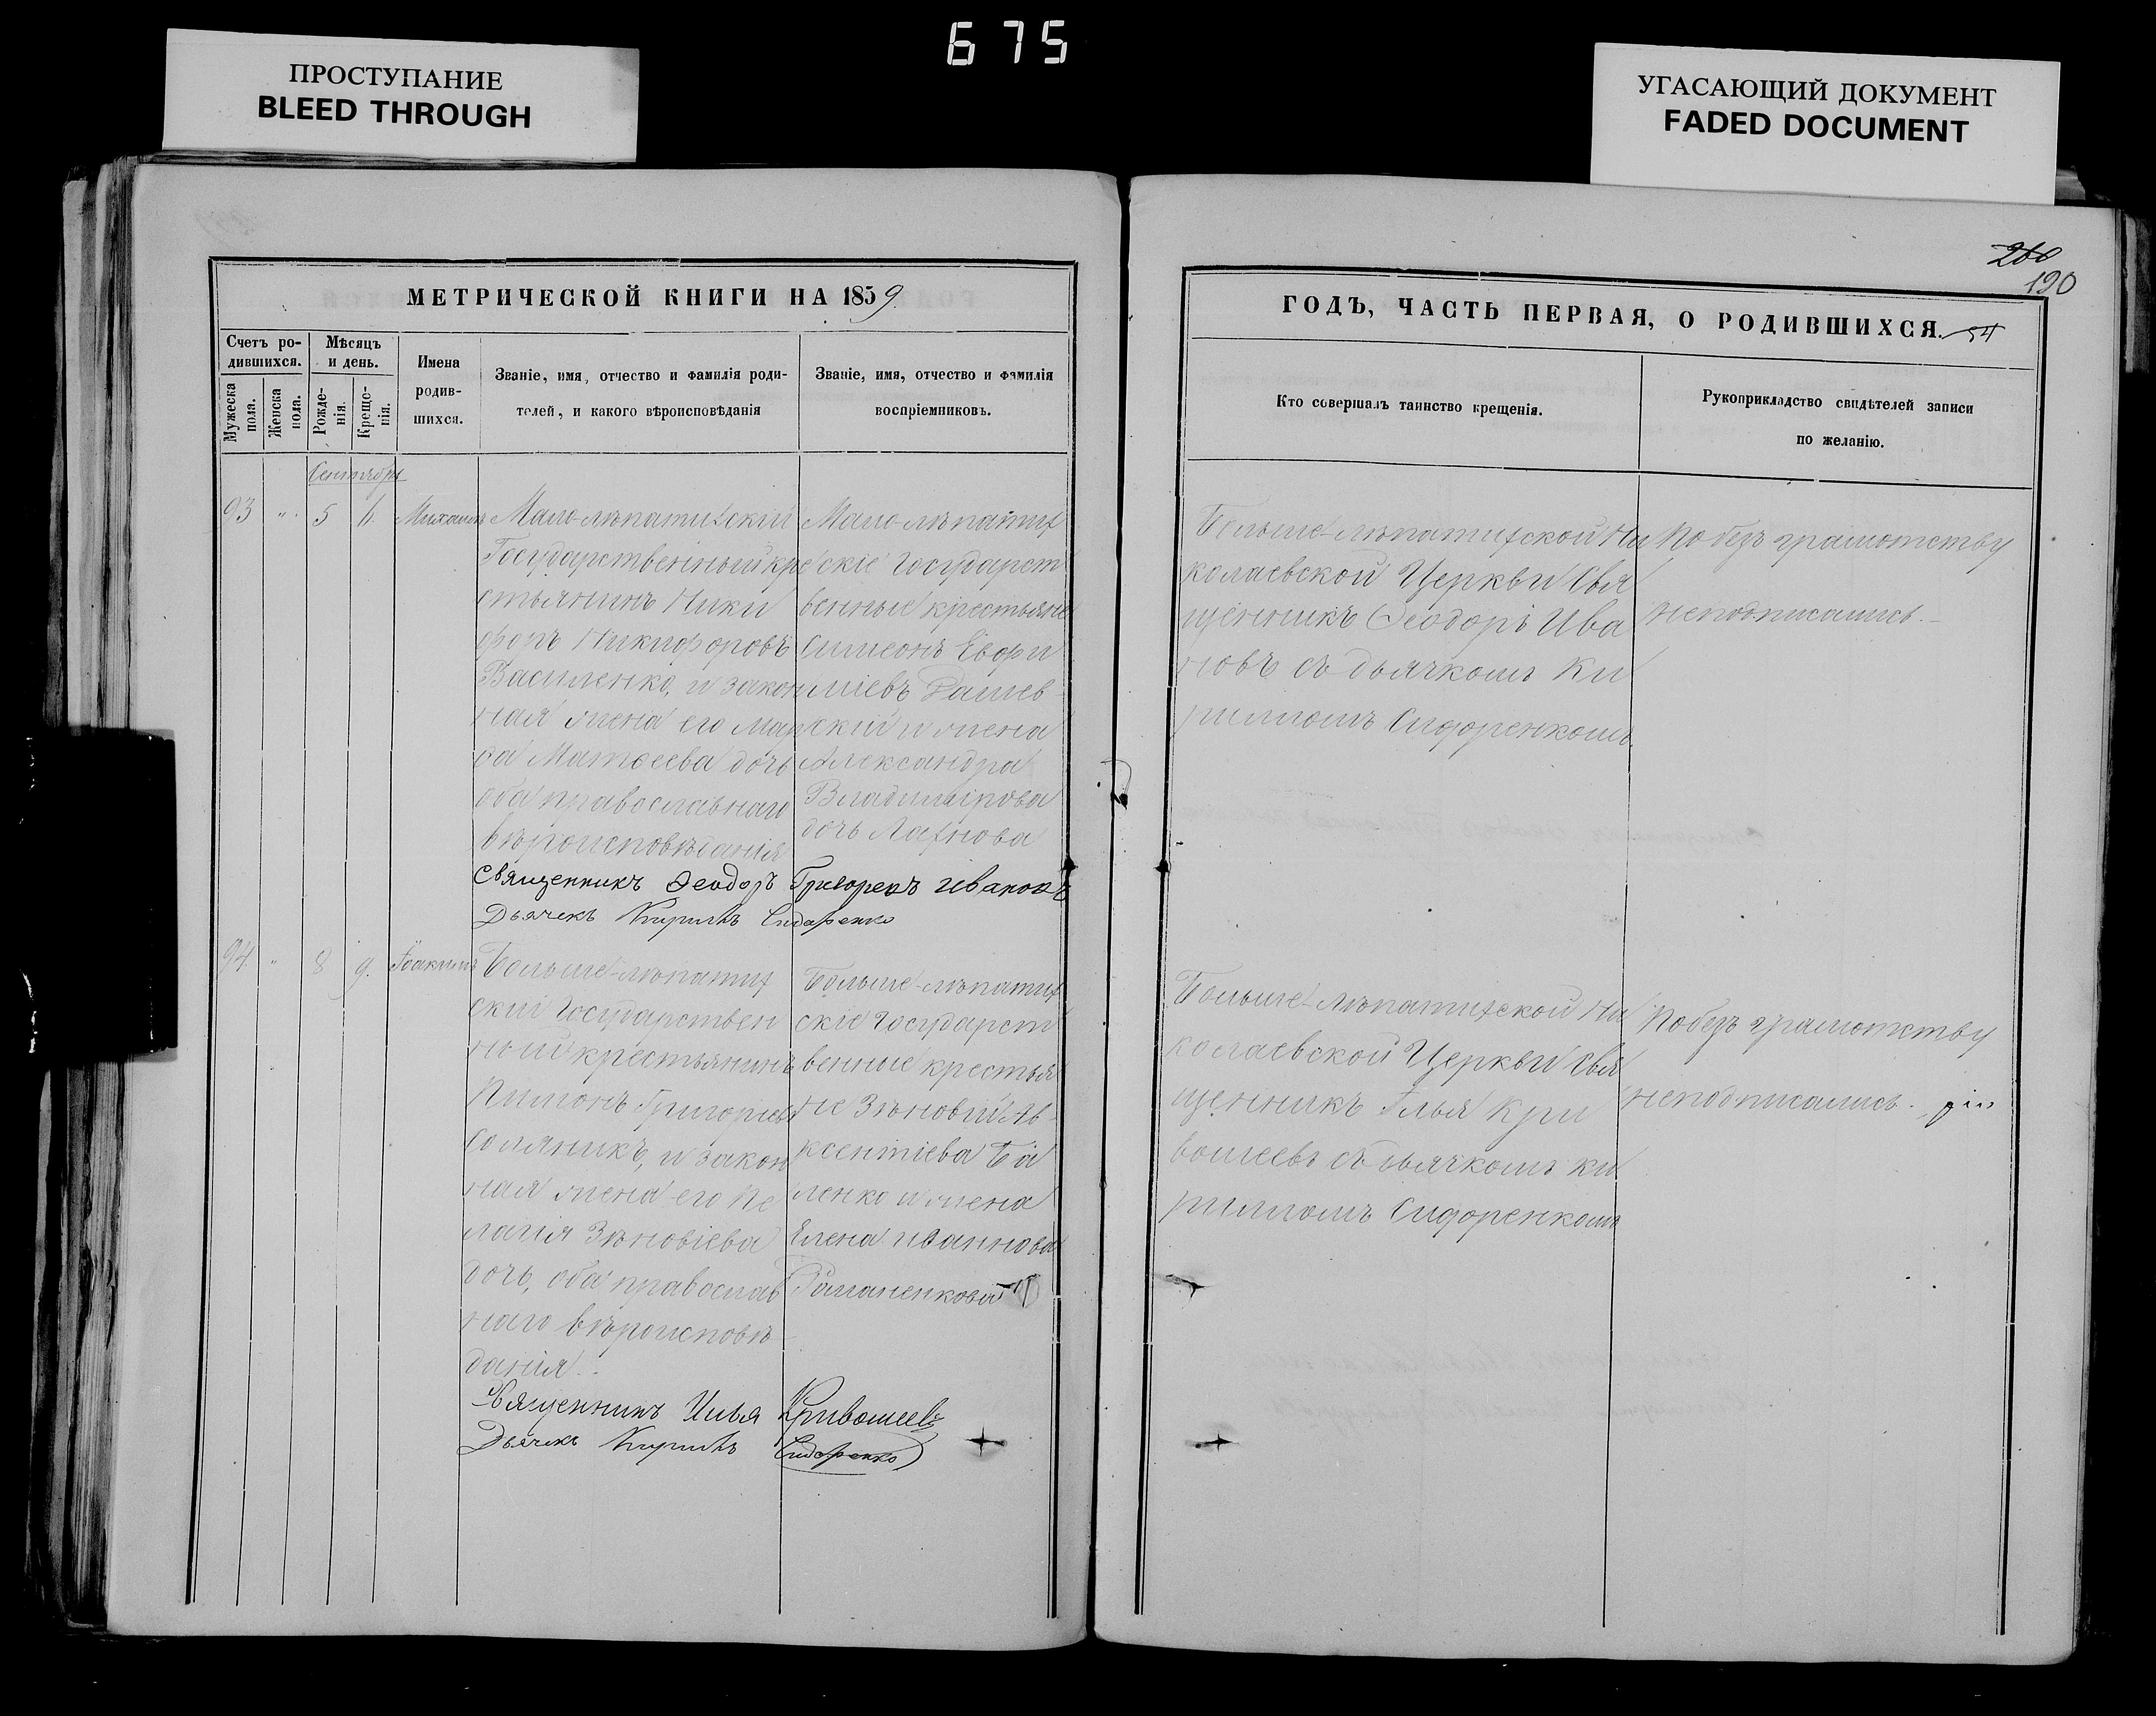 675
ПРОСТУПАНИЕ
BLEED THROUGH
УГАСАЮЩИЙ ДОКУМЕНТ
FADED DOCUMENT
МЕТРИЧЕСКОЙ КНИГИ НА 1859
Счетъ ро-
дившихся.
Мужеска
пола.
Женска
пола.
Мѣсяцъ
и день.
Рожде-
нія.
Креще-
нія.
Имена
родив-
шихся.
Званіе, имя, отчество и фамилія роди-
телей, и какого вѣроисповѣданія
Званіе, имя, отчество и фамилія
воспріемниковъ.
Сентябрь
93 " 5 6. Михаилъ
Мало-лѣпатихскій
Государственный кре
стьянинъ Ники
форъ Никифоровъ
Василенко, и закон
ная жена его Мар
ѳа Матѳеева дочь
оба православнаго
вѣроисповѣданія
Мало-лѣпатих
скіе Государст
венные крестьяне
Симеонъ Евѳи
міевъ
скій и жена
Александра
Владимірова
дочь
Священникъ Ѳеодоръ Григорьевъ Ивановъ
Дьячекъ Кириллъ Сидоренко
94. " 8 9. Іоакимъ
Больше-лѣпатих
скій Государствен
ный крестьянинъ
Пимонъ Григорьевъ
Соляникъ, и закон
ная жена его Пе
лагія Зѣновіева
дочь, оба православ
наго вѣроисповѣ-
данія.
Больше-лѣпатих
скіе Государст
венные крестья
не Зѣновій Ав-
ксентіева
ленко и жена
Елена Иваннова
Романенкова
Священникъ Илья Кривошеевъ
Дьячекъ Кириллъ Сидоренко
200
190
ГОДЪ, ЧАСТЬ ПЕРВАЯ, О РОДИВШИХСЯ. 54
Кто совершалъ таинство крещенія.
Рукоприкладство свидѣтелей записи
по желанію.
Больше-лѣпатихской Ни
колаевской Церкви Свя
щенникъ Ѳеодоръ Ива
новъ съ дьячкомъ Ки
рилломъ Сидоренкомъ.
По безграмотству
неподписались.
Больше-лѣпатихской Ни
колаевской Церкви Свя
щенникъ Илья Кри
вошеевъ съ дьячкомъ Ки
рилломъ Сидоренкомъ
По безграмотству
неподписались.